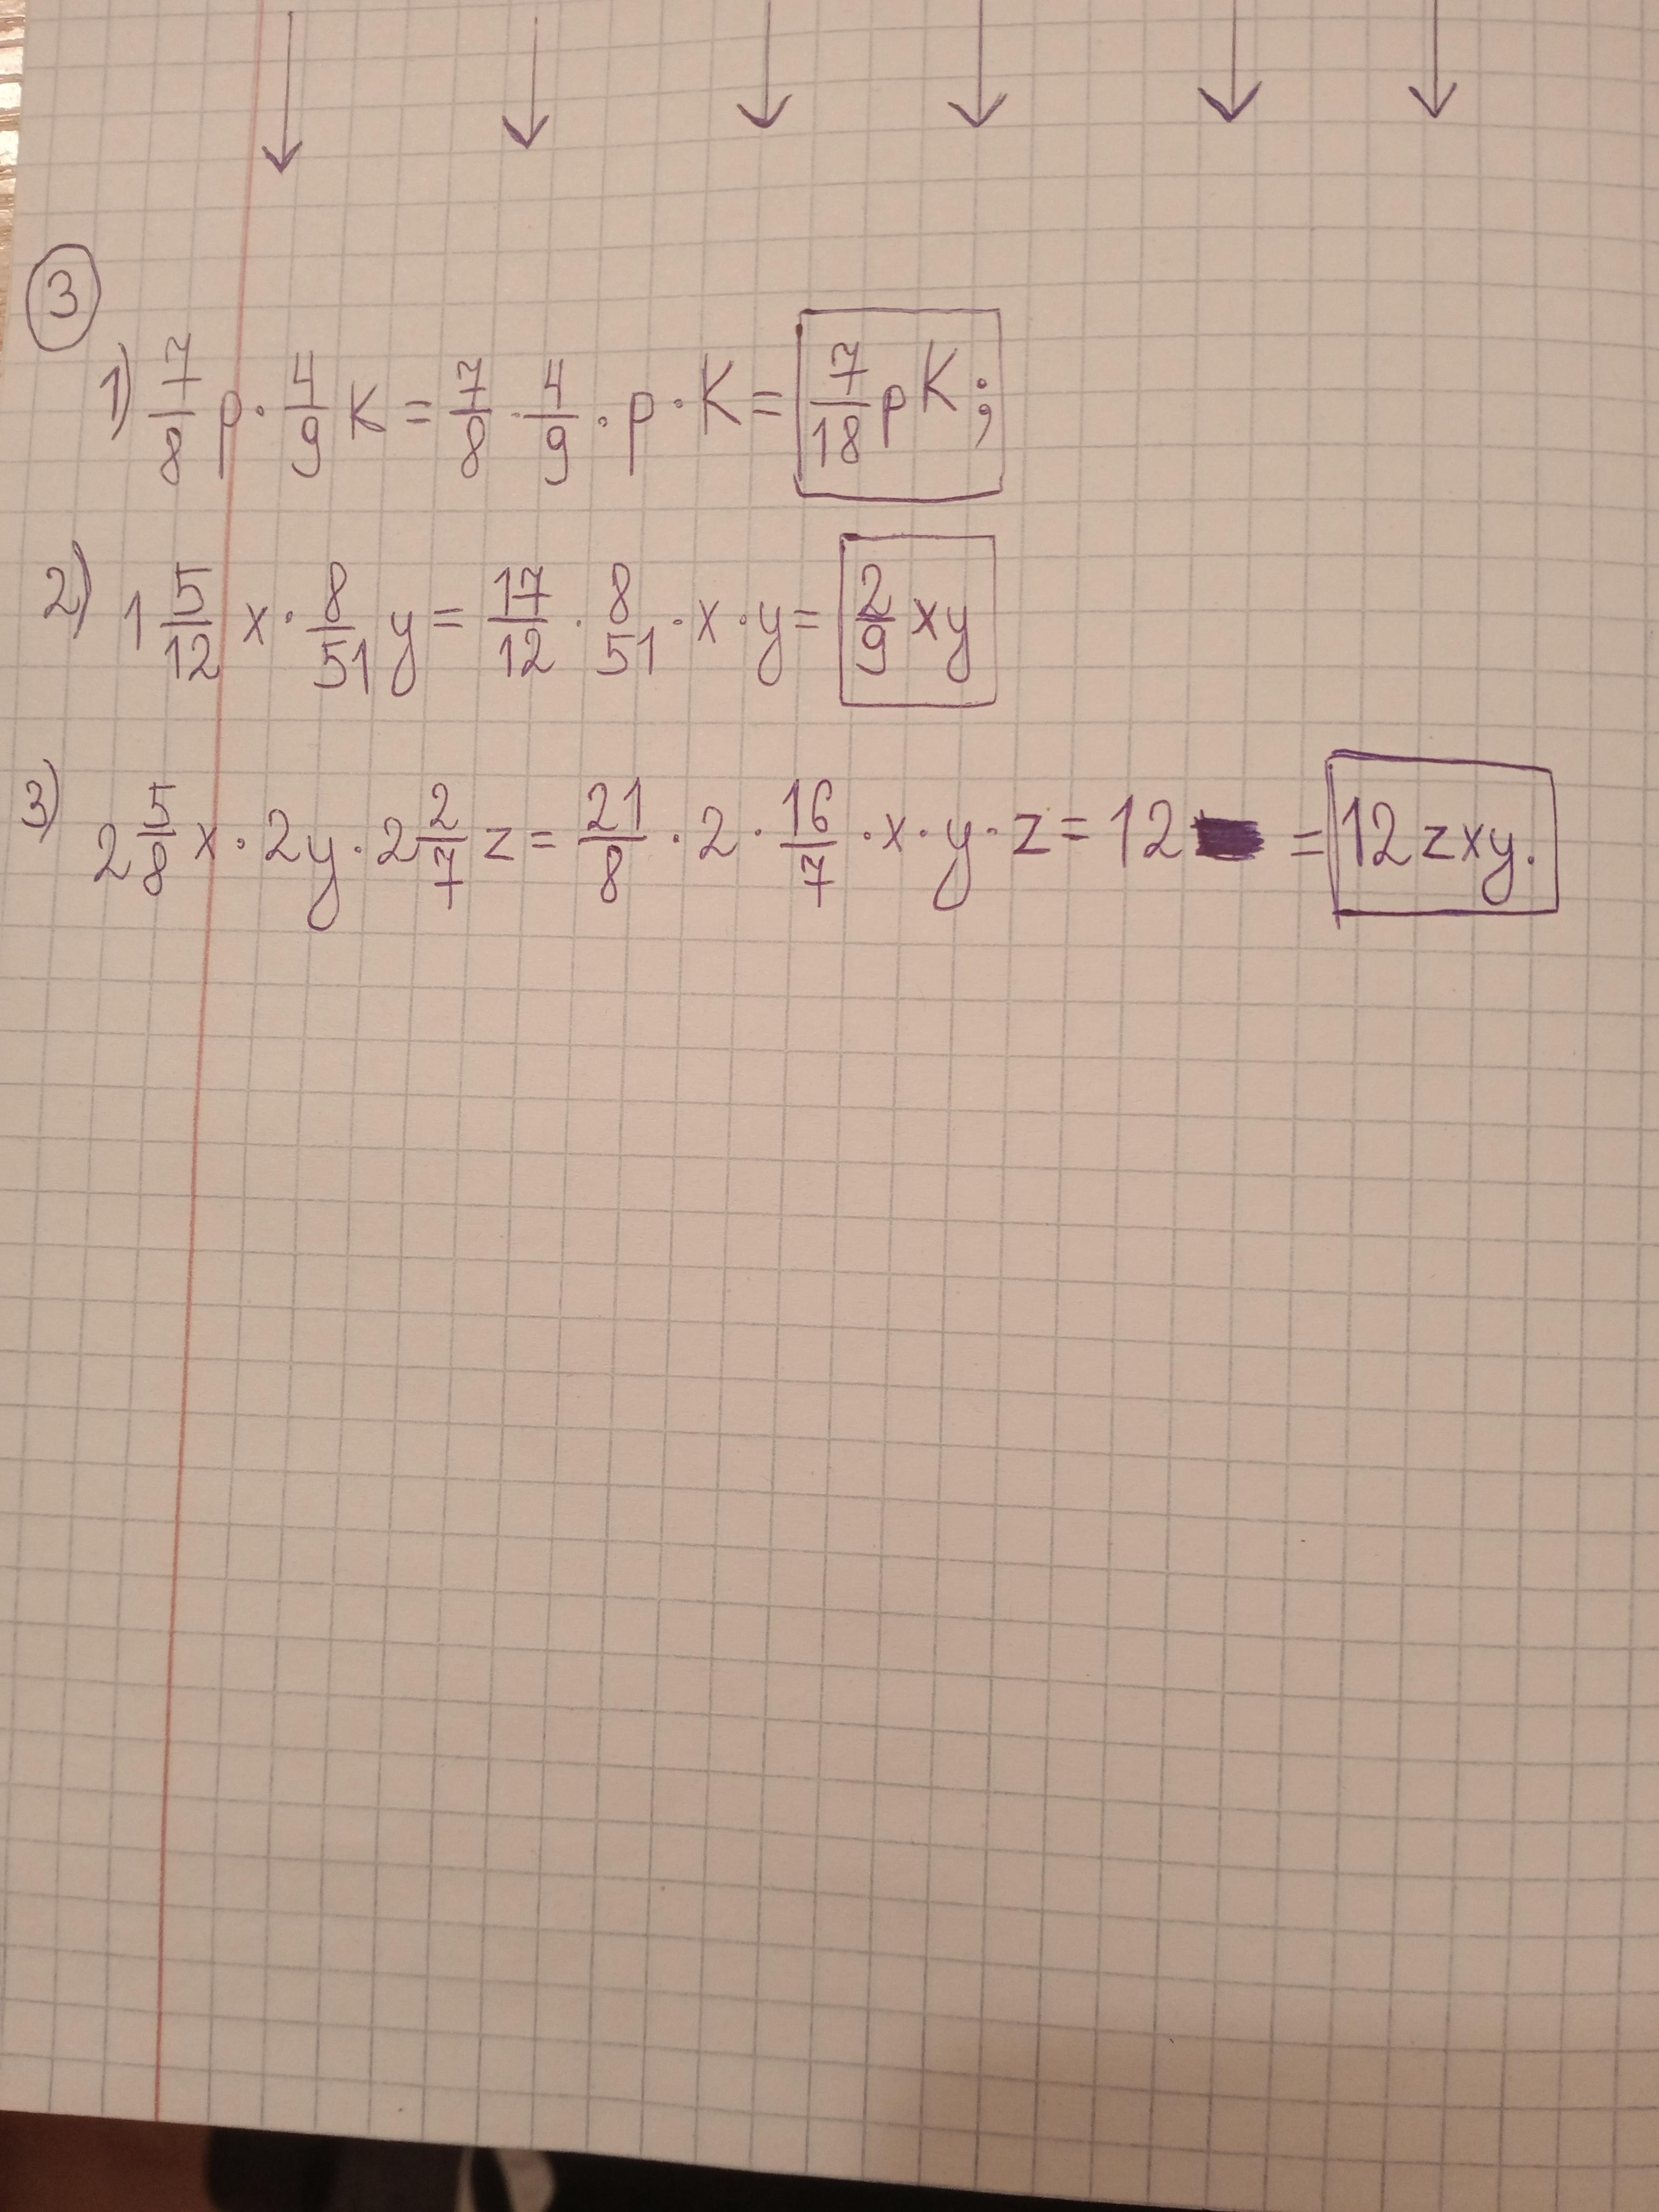 3
1) 7/8 p · 4/9 K = 7/8 · 4/9 · p · K = 7/18 pK;
2) 1 5/12 x · 8/51 y = 17/12 · 8/51 · x · y = 2/9 xy
3) 2 5/8 x · 2y · 2 2/7 z = 21/8 · 2 · 16/7 · x · y · z = 12 = 12zxy.